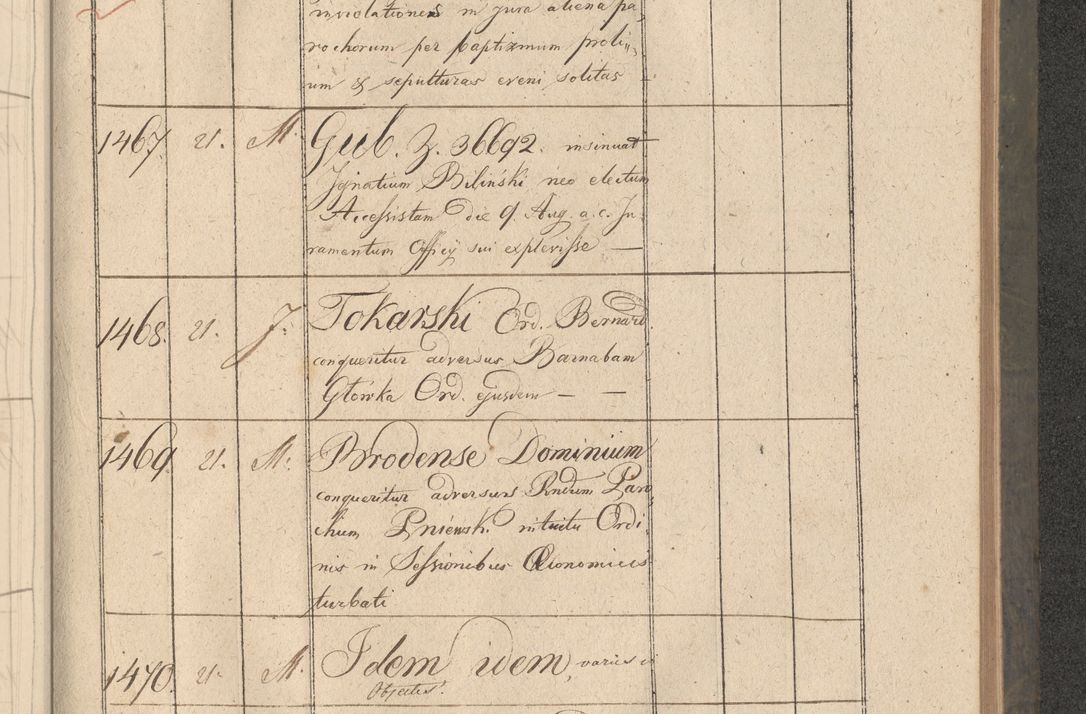 inviolationes in jura aliena pa,
rochorum per baptismum proli,,
um & sepulturas eveni solitas —.
1467. 21. M. Gub. Z. 36692. insinuat
Ignatium Biliński neo electum
Accessistam die 9. Aug. a.c. Ju,
ramentum Officij sui explevisse —
1468. 21. J. Tokarski Ord. Bernard.
conqueritur adversus Barnabam
Głowka Ord. ejusdem — —
1469. 21. M. Brodense Dominium
conqueritur adversus Rndum Paro,
chum Pniewski intuitu Ordi,
nis in Sessionibus Oeconomicis
turbati
1470. 21. M. Idem idem, varies in
Objectis.